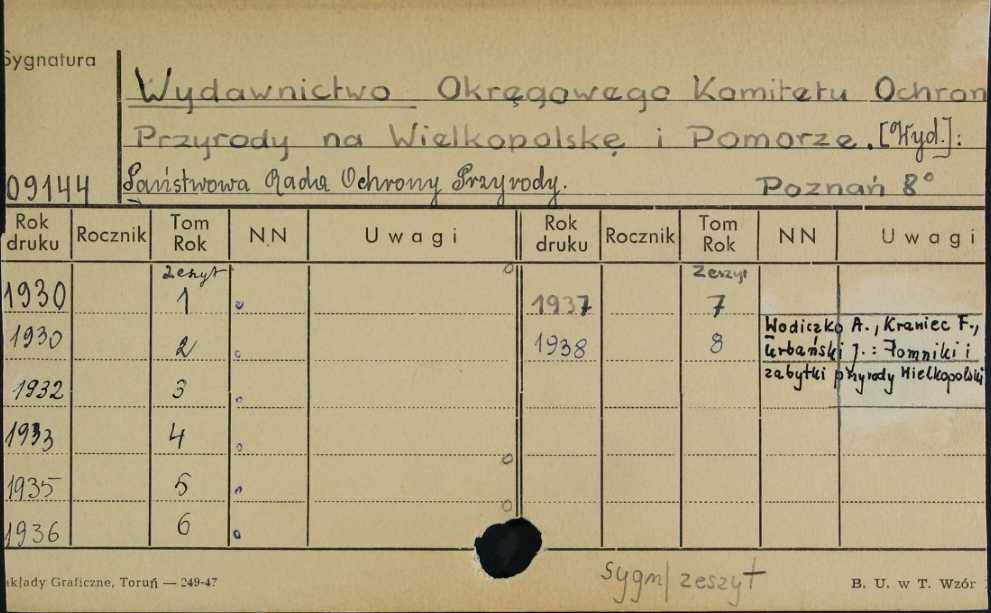 Sygnatura
Wydawnictwo Okręgowego Komitetu Ochron
Przyrody na Wielkopolskę i Pomorze. [Wyd.]:
09144 Państwowa Rada Ochrony Przyrody. Poznań 8°
Rok druku Rocznik Tom Rok NN Uwagi Rok druku Rocznik Tom Rok NN Uwagi
zeszyt zeszyt
1930 1 1937 7
1930 2 1938 8 Wodiczko A., Kraniec F.,
Urbański J.: Pomniki i
zabytki przyrody Wielkopolski
1932 3
1933 4
1935 5
1936 6
akłady Graficzne, Toruń — 249-47
sygn/zeszyt
B. U. w T. Wzór